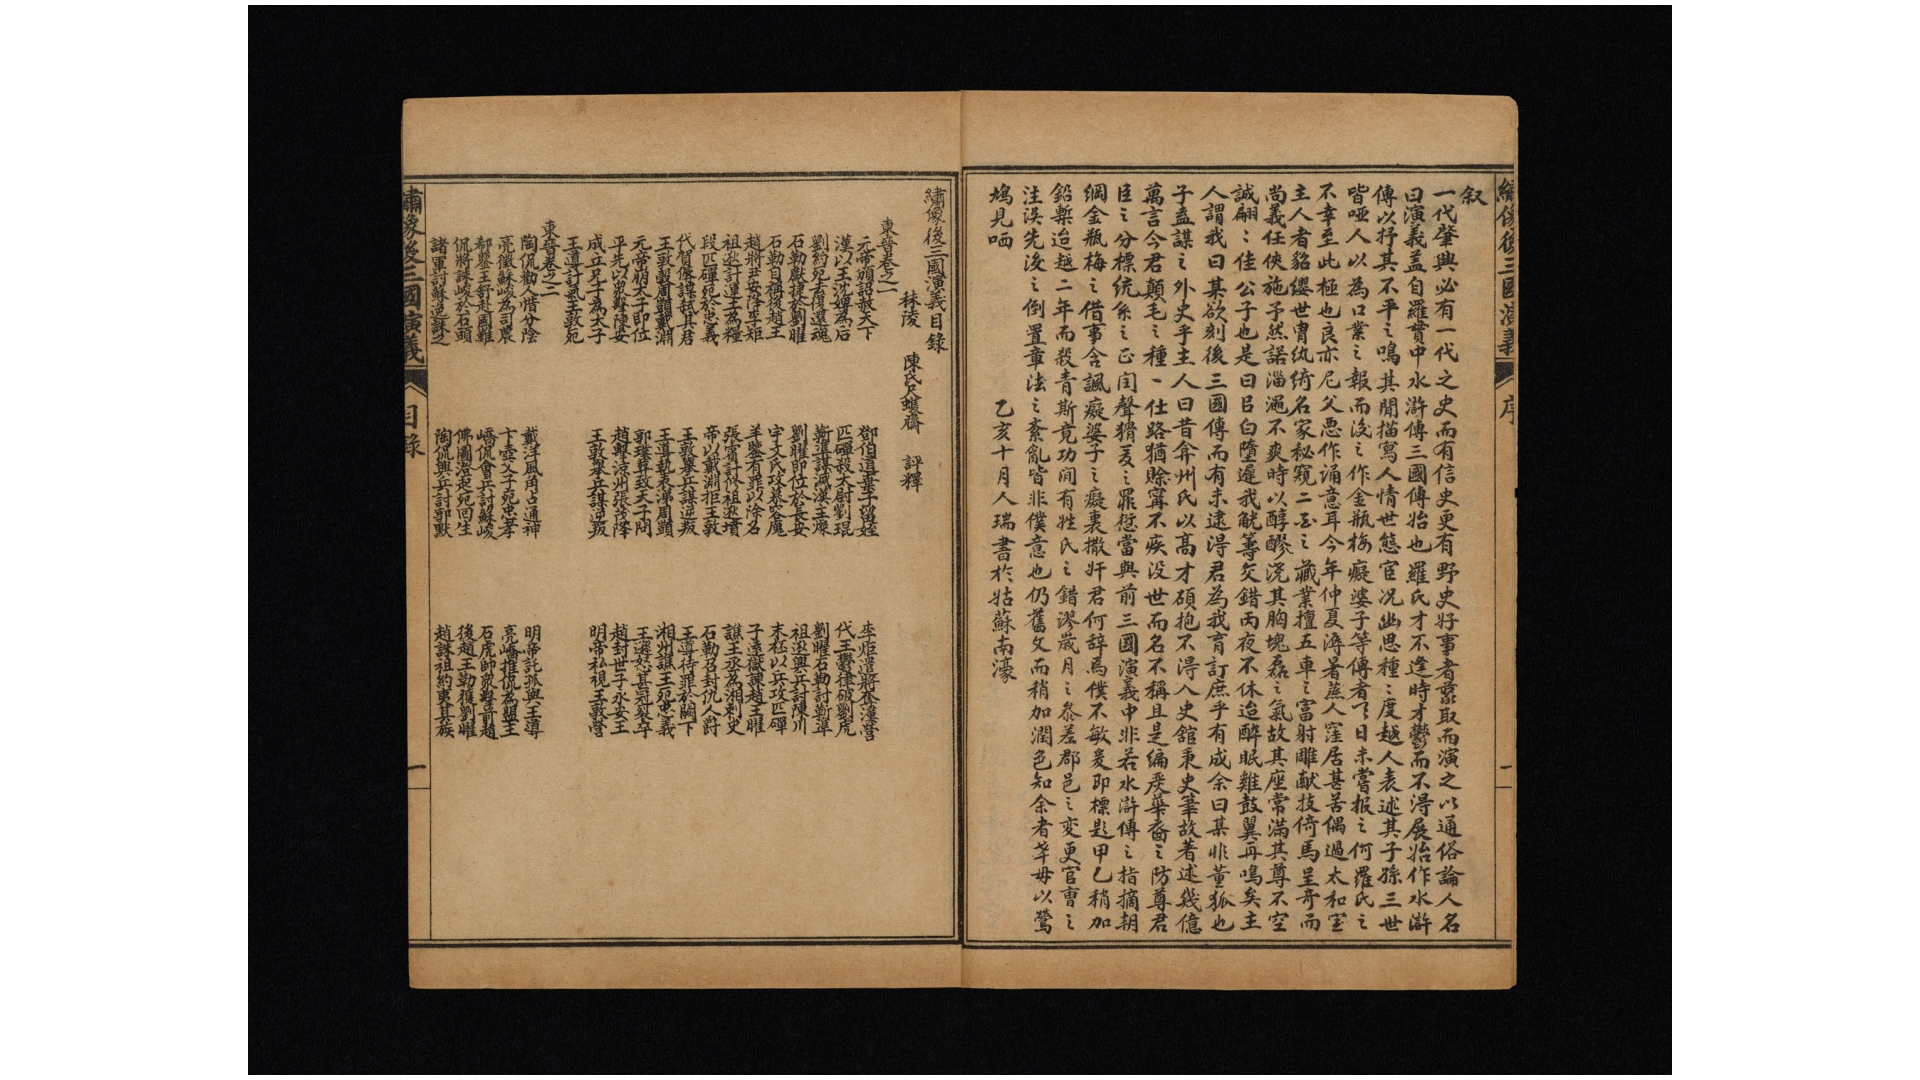 繡像後三國演義
序
二
叙
一代肇興必有一代之史而有信史更有野史好事者裒取而演之以通俗論人名
曰演義盖自羅貫中水滸傳三國傳始也羅氏才不逢時才鬱而不得展始作水滸
傳以抒其不平之鳴其間描寫人情世態宦况幽思種〻度越人表述其子孫三世
皆啞人以為口業之報而後之作金瓶梅癡婆子等傳者天日未嘗報之何羅氏之
不幸至此極也良亦尼父惡作诵意耳今年仲夏溽暑蒸人窪居甚苦偶過太和室
主人者貂纓世冑紈綺名家秘窺二酉之藏業擅五車之富射雕献技倚馬呈奇而
尚義任俠施予然諾淄澠不爽時以醇醪澆其胸塊磊之氣故其座常滿其尊不空
誠翩〻佳公子也是日呂白墮遲我觥籌交錯丙夜不休迨醉眠雞鼓翼再鳴矣主
人謂我曰某欲刻後三國傳而有未逮得君為我肓訂庶乎有成余曰某非董狐也
子盍謀之外史乎主人曰昔弇州氏以高才碩抱不得入史舘秉史筆故著述幾億
萬言今君顛毛之種〻仕路猶賒寗不疾没世而名不稱且是編嚴華裔之防尊君
臣之分標統系之正闰聲猾夏之罪愆當與前三國演義中非若水滸傳之指摘朝
綱金瓶梅之借事含諷癡婆子之癡裏撒奸君何辞焉僕不敏爰即標題甲乙稍加
鉛槧迨越二年而殺青斯竟功间有姓氏之錯謬歲月之叅差郡邑之変更官曹之
注误先後之倒置章法之紊亂皆非僕意也仍舊文而稍加潤色知余者幸毋以鶯
鳩見哂
乙亥十月人瑞書於姑蘇南濠
繡像後三國演義目錄
秣陵 陳氏尺蠖齋 評釋
東晉卷之一
元帝頒詔赦天下 鄧伯道棄子留姪 李炬遣將奪漢營
漢以王沈婢為后 匹磾殺太尉劉琨 代王鬱律破劉虎
劉約死去復還魂 靳準謀滅漢主粲 劉曜石勒討靳準
石勒獻捷於劉曜 劉曜即位於長安 祖逖興兵討陳川
石勒自稱後趙王 宇文氏攻慕容廆 末柸以兵攻匹磾
趙將尹安降李矩 羊鑒有罪以除名 子遠嶽諫趙王曜
祖逖計運土為糧 張賓計修祖逖墳 譙王丞為湘刺史
段匹磾死於忠義 帝以戴淵拒王敦 石勒召封仇人爵
代賀傉謀弒其君 王敦舉兵謀逆叛 王導待罪於闕下
王敦殺周顗戴淵 王導執表涕周顗 湘州譙王死忠義
元帝崩太子即位 郭璞葬致天子問 王遜怒甚冠裂卒
平先以忠擊陳安 趙擊涼州張茂降 趙封世子永安王
成立兄子為太子 王敦舉兵謀逆叛 明帝私視王敦營
王導討氣王敦死
東晉卷之二
陶侃勸人惜分陰 戴洋風角占通神 明帝託孤與王導
亮徵蘇峻為司農 卞壼父子死忠孝 亮嶠推侃為盟主
郗鑒王舒赴國難 嶠侃會兵討蘇峻 石虎帥眾擊前趙
侃將誅峻於石頭 佛圖澄起死回生 後趙王勒獲劉曜
諸軍討蘇逸誅之 陶侃興兵討郭默 趙誅祖約夷其族
繡像後三國演義
目錄
一